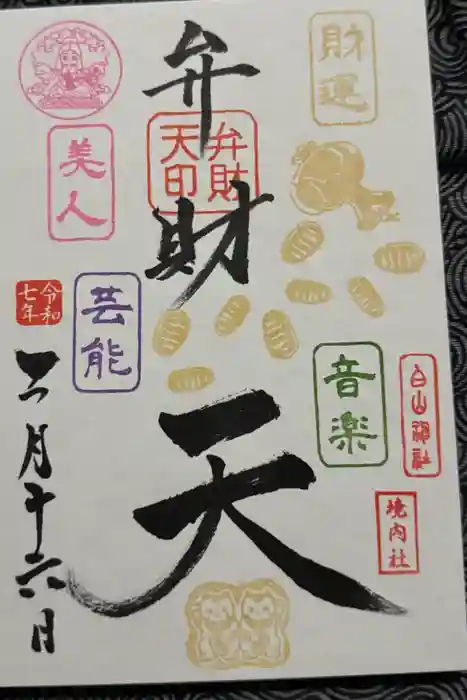 財運
弁財天
弁財
天印
美人
芸能
音楽
白山神社
境内社
令和
七年
三月十六日